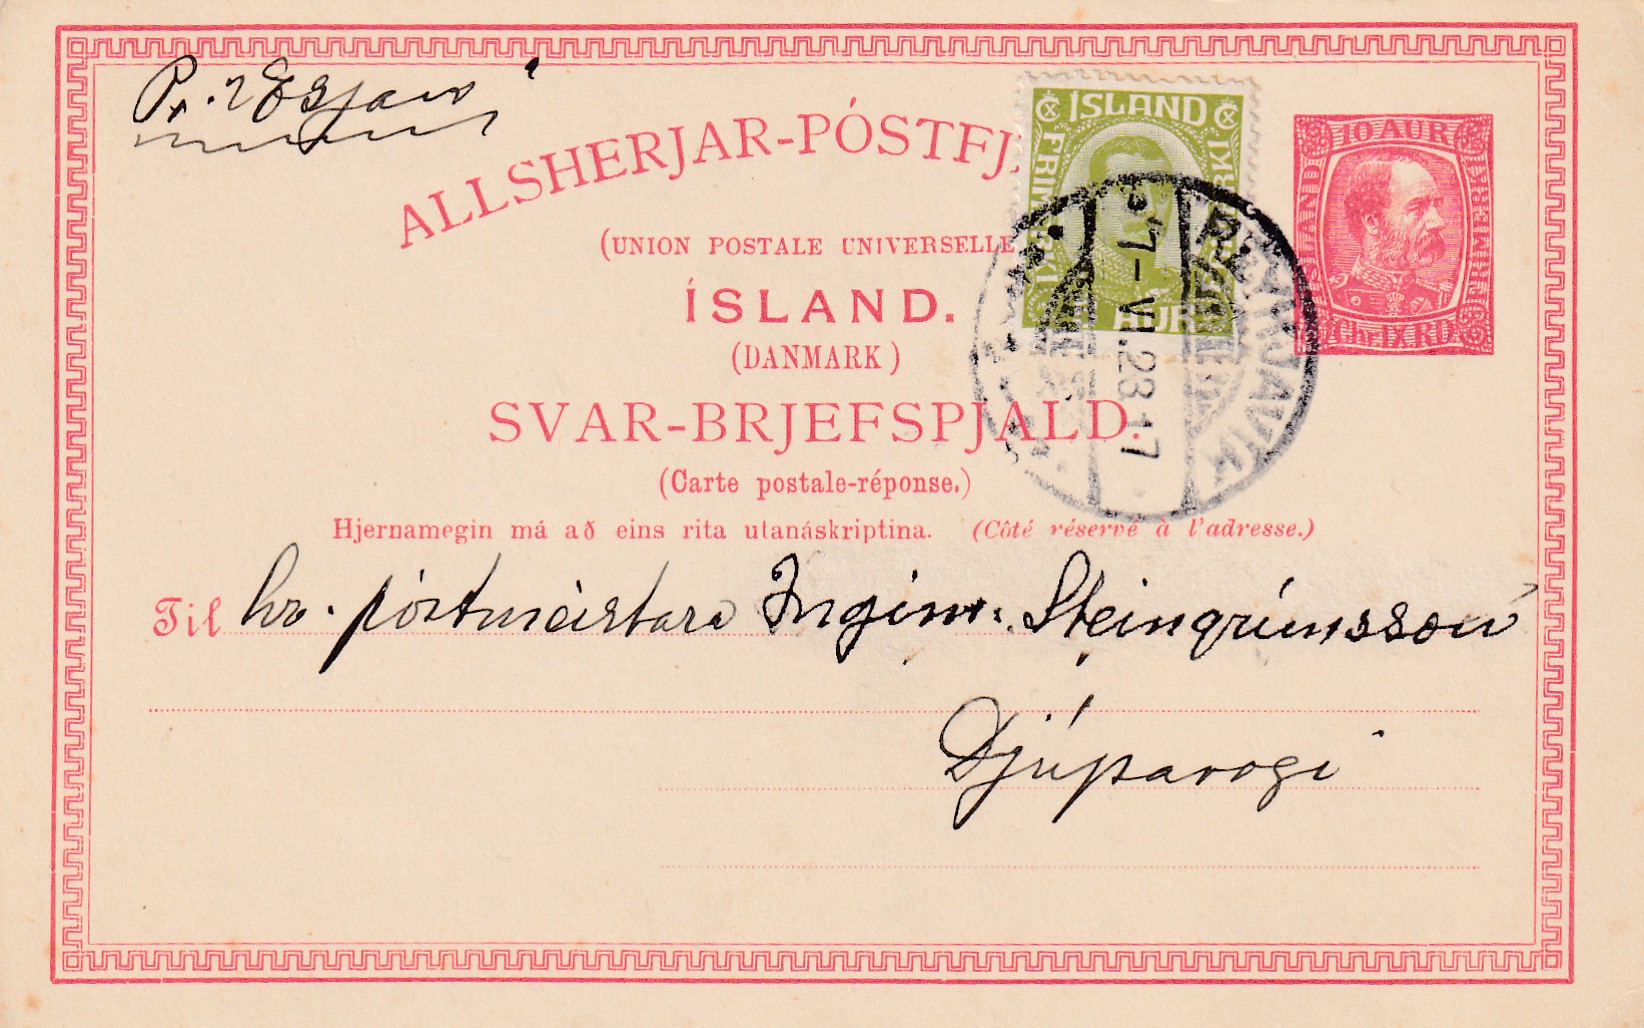 Pr. "Esjan"
ALLSHERJAR-PÓSTFJ
(UNION POSTALE UNIVERSELLE
ÍSLAND.
(DANMARK)
SVAR-BRJEFSPJALD.
(Carte postale-réponse.)
Hjernamegin má að eins rita utanáskriptina. (Côté réservé à l'adresse.)
ÍSLAND
AUR
10 AUR
CHR. IX RD
REYKJAVÍK
17-VI.23 17
Til hr. póstmeistara Ingim. Steingrímsson
Djúpavogi